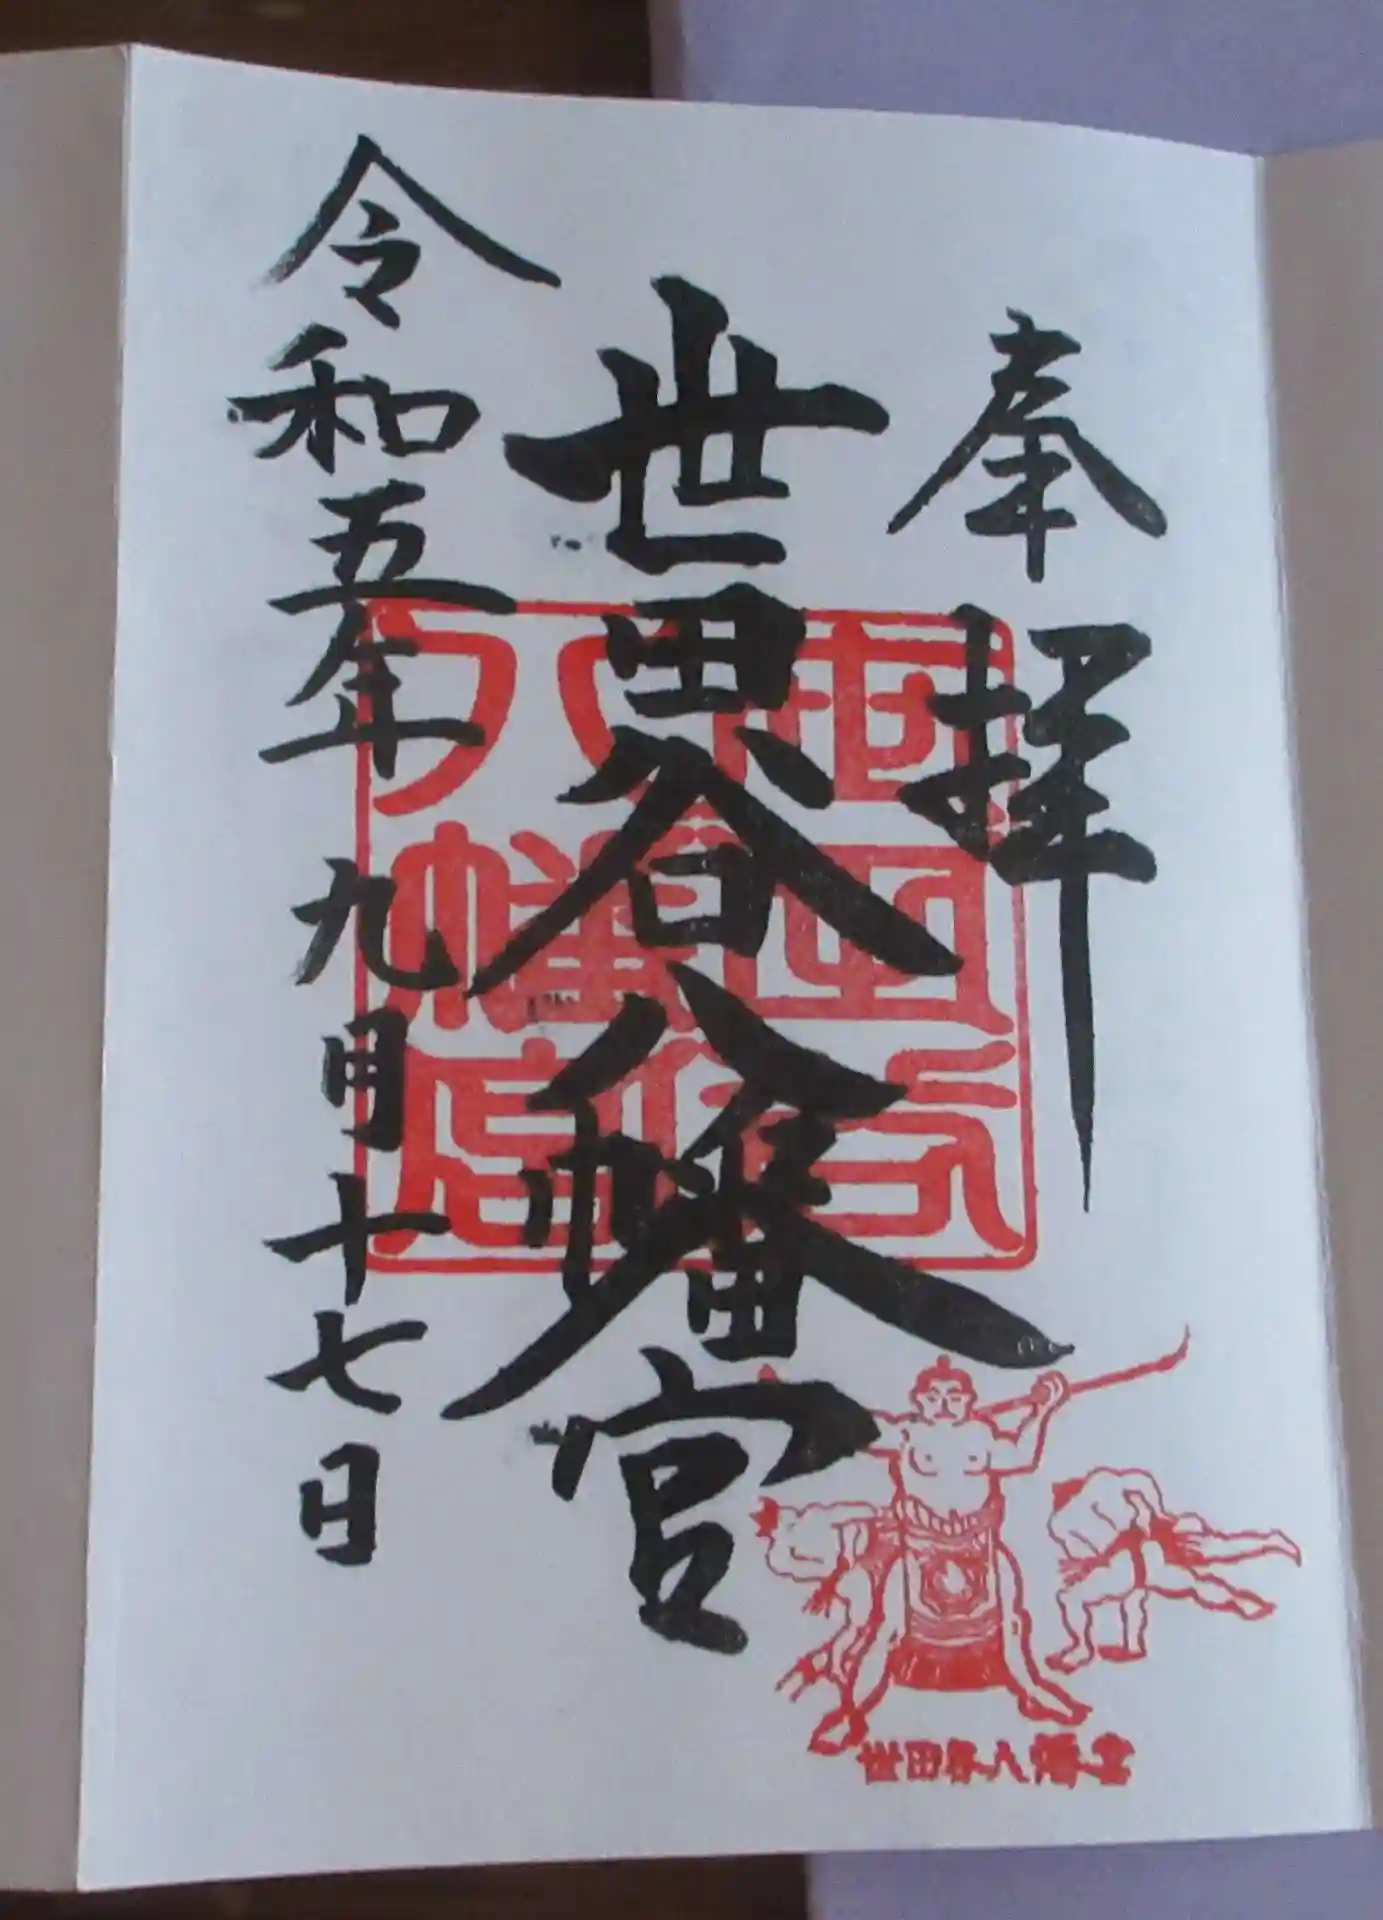 奉拝
世田谷八幡宮
令和五年九月十七日
世田谷八幡宮
世田谷八幡宮